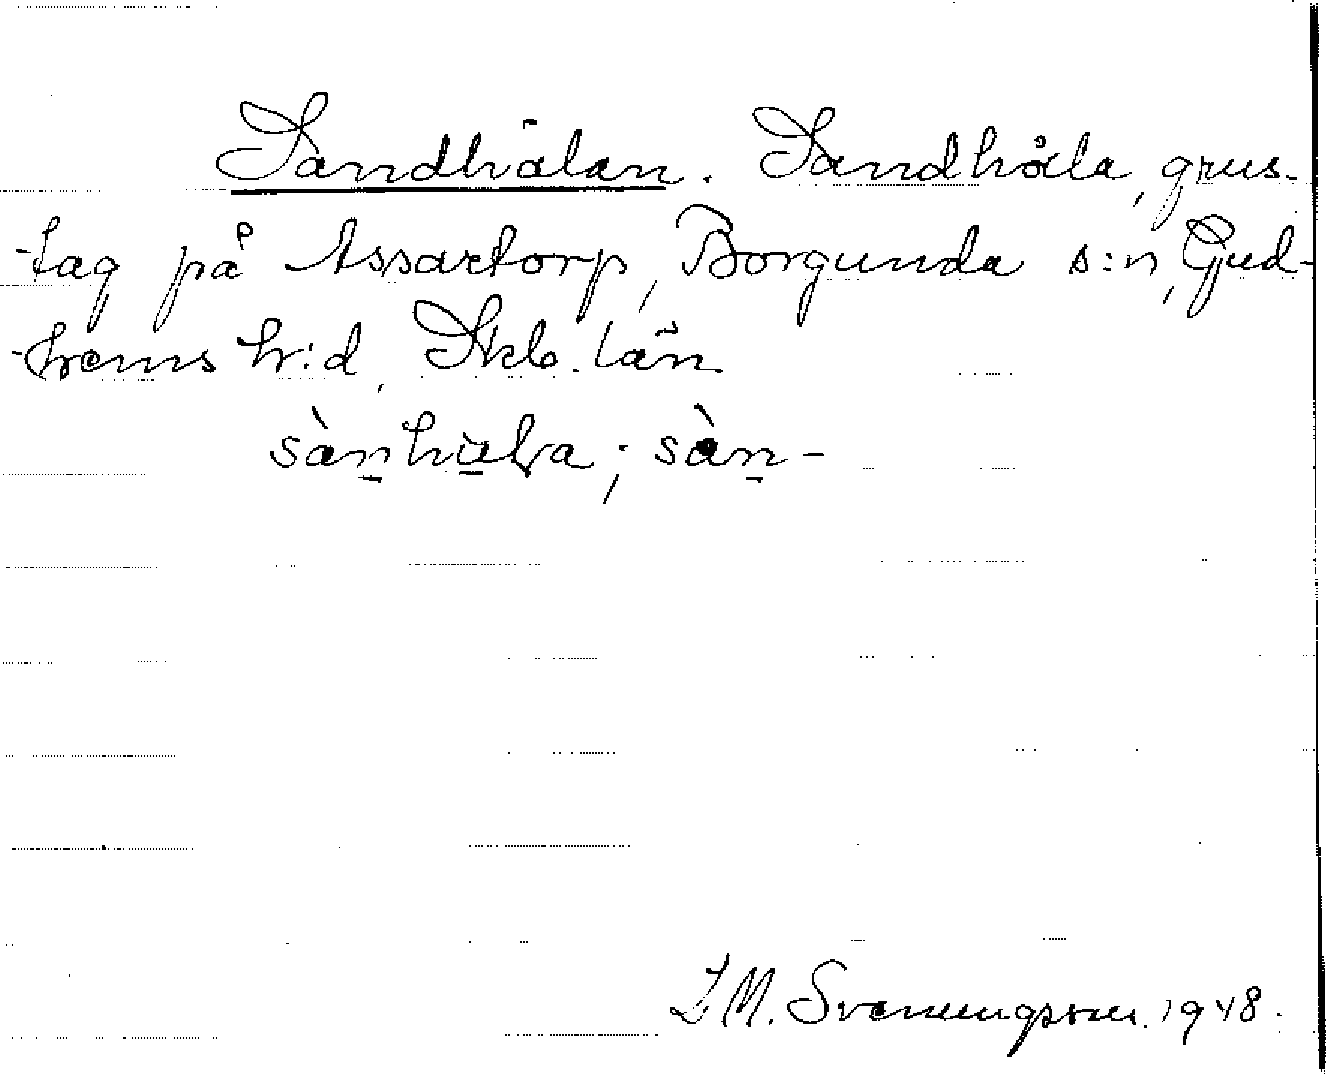 Sandhålan. Sandhåla, grus-
-tag på Assartorp, Borgunda s:n, Gud-
-hems h:d, Skb. län
sàn̠hu̠lva; sàn̠-
L M. Svenungsson. 1948.